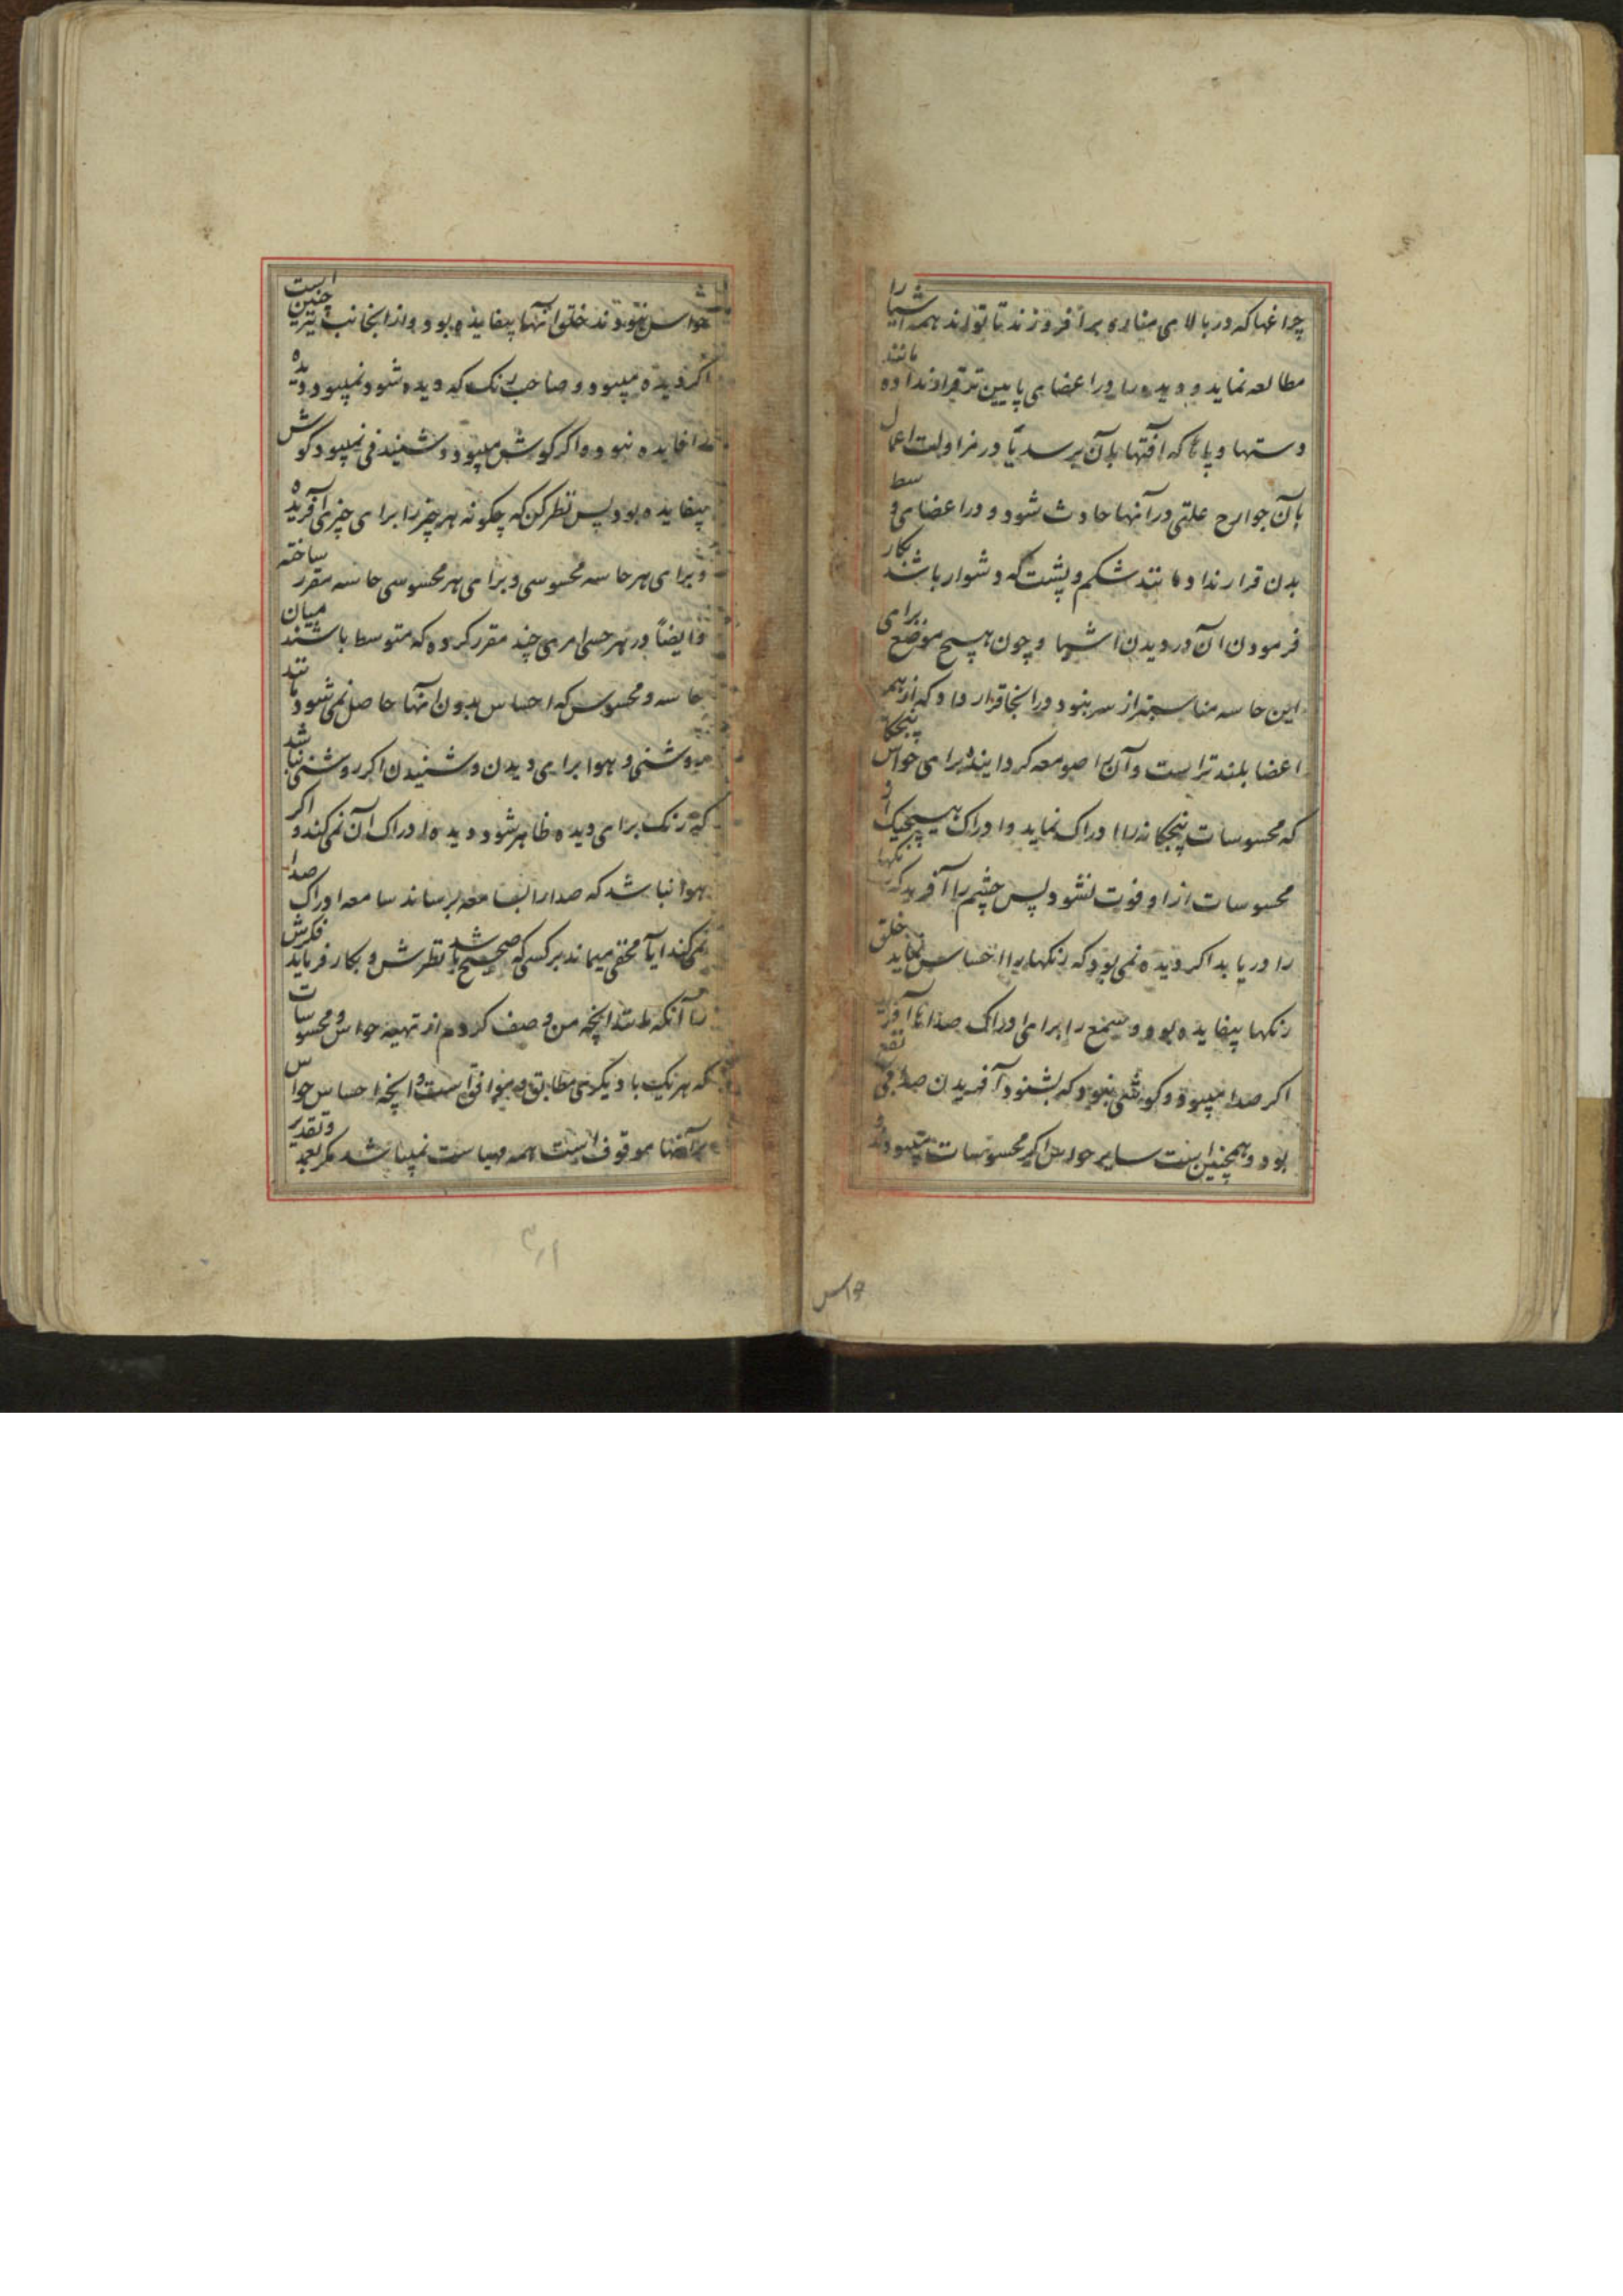 چراغها که در بالای مناره برافروزند تا توانند همه اشیا را
مطالعه نماید و دیده را در اعضای پایین تر قرار نداده مانند
دستها و پاها که آفتها بآن برسد یا در مزاولت اعمال
بآن جوارح علتی در آنها حادث شود و در اعضای وسط
بدن قرار نداد مانند شکم و پشت که دشوار باشد بکار
فرمودن آن در دیدن اشیا و چون هیچ موضع برای
این حاسه مناسبتر از سر نبود در انجا قرار داد که از همه
اعضا بلند تر است و آن را صومعه گردانیده برای حواس پنجگا
که محسوسات پنجگانه را ادراک نماید و ادراک هیچیک از
محسوسات از او فوت نشود پس چشم را آفرید که رنگها
را دریابد اگر دیده نمی بود که رنگها را احساس نماید خلق
رنگها بیفایده بود و سمع را برای ادراک صداها آفرید
اگر صدا میبود و گوشی نبود که بشنود آفریدن صدا بی نفع
بود و همچنین است سایر حواس اگر محسوسات میبودند
حواس
حواس نبودند خلق آنها بیفایده بود و از انجانب نیز چنین است
اگر دیده میبود و صاحب رنگ که دیده شود نمیبود دیده
را فایده نبود و اگر گوش میبود و شنیدنی نمیبود گوش
بیفایده بود پس نظر کن که چگونه هر چیز را برای چیزی آفریده
و برای هر حاسه محسوسی و برای هر محسوسی حاسه مقرر ساخته
و ایضاً در هر حسی امری چند مقرر کرده که متوسط باشند میان
حاسه و محسوس که احساس بدون آنها حاصل نمی شود مانند
روشنی و هوا برای دیدن و شنیدن اگر روشنی نباشد
که رنگ برای دیده ظاهر شود دیده ادراک آن نمی کند و اگر
هوا نباشد که صدا را بسامعه برساند سامعه ادراک صدا
نمی کند ایا مخفی میماند بر کسی که صحیح باشد نظرش و بکار فرماید فکرش
را آنکه انچه من وصف کردم از تهیه حواس و محسوسات
که هر یک با دیگری مطابق و موافق است و انچه احساس حواس
بر آنها موقوف است همه مهیاست نمیباشد مگر بعمد و تقدیر